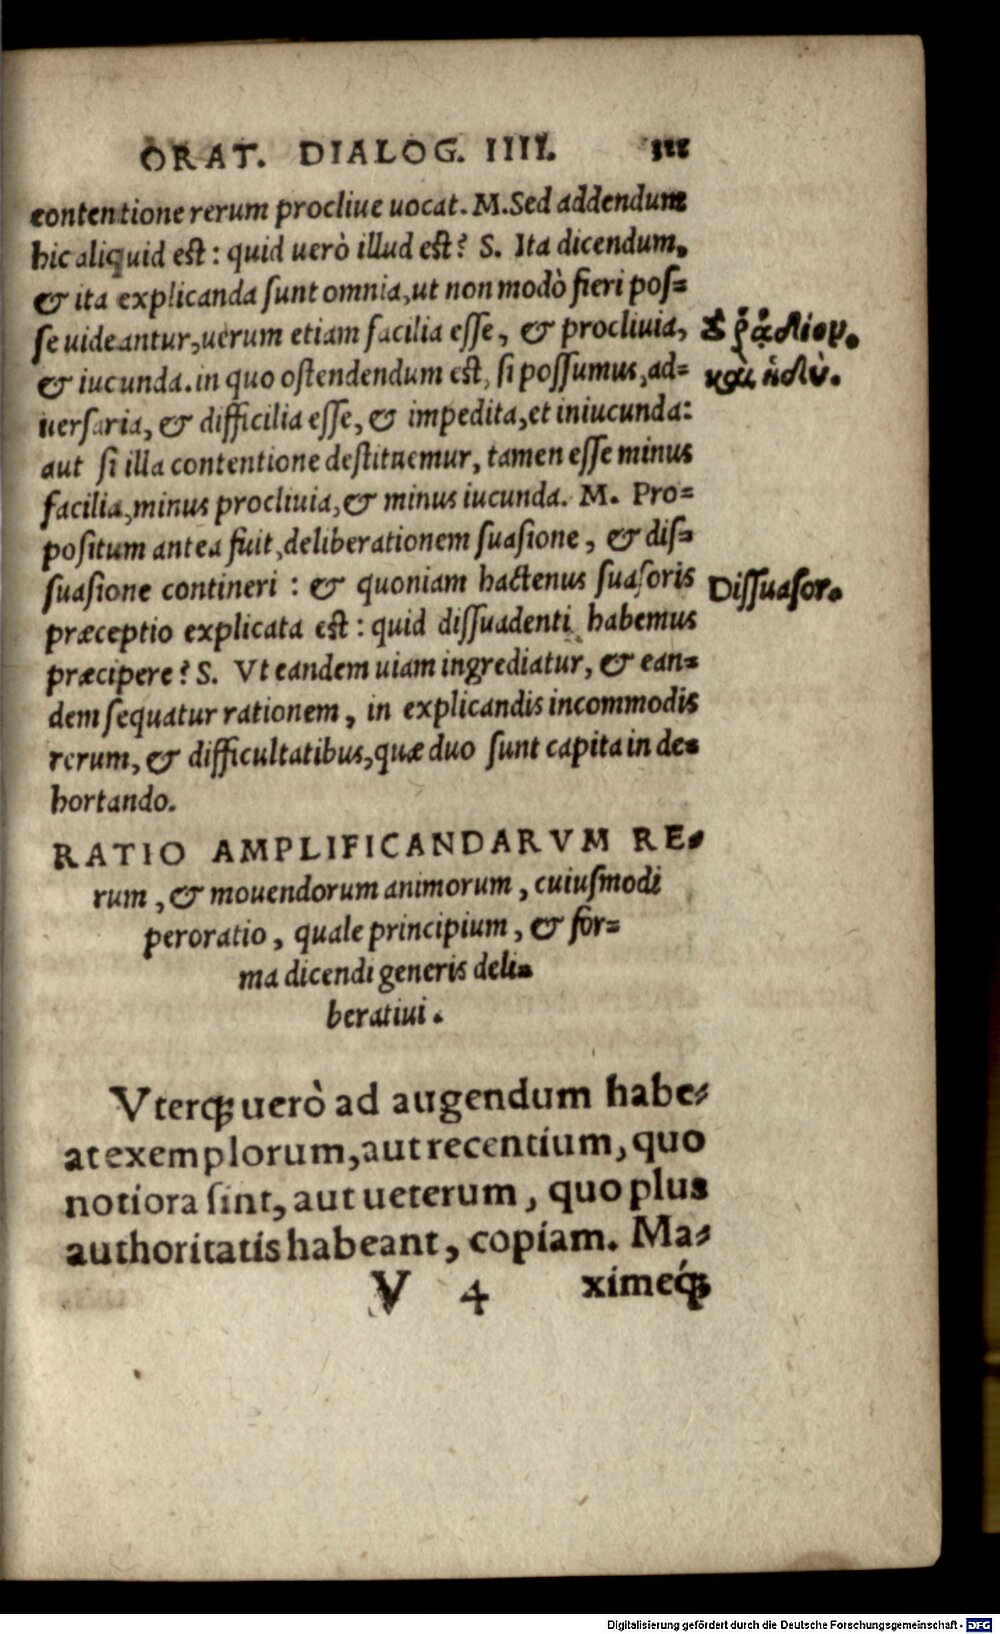 ORAT. DIALOG. IIII.
contentione rerum procliue uocat. M. Sed addendum
hic aliquid est: quid uerò illud est? S. Ita dicendum,
& ita explicanda sunt omnia, ut non modò fieri pos=
se uideantur, uerum etiam facilia esse, & procliuia,
& iucunda. in quo ostendendum est, si possumus, ad=
uersaria, & difficilia esse, & impedita, et iniucunda:
aut si illa contentione destituemur, tamen esse minus
facilia, minus procliuia, & minus iucunda. M. Pro=
positum antea fuit, deliberationem suasione, & dis=
suasione contineri: & quoniam hactenus suasoris
Dissuasor.
præceptio explicata est: quid dissuadenti habemus
præcipere? S. Vt eandem uiam ingrediatur, & ean=
dem sequatur rationem, in explicandis incommodis
rerum, & difficultatibus, quæ duo sunt capita in de=
hortando.
RATIO AMPLIFICANDARVM RE=
rum, & mouendorum animorum, cuiusmodi
peroratio, quale principium, & for=
ma dicendi generis deli=
beratiui.
Vterq; uerò ad augendum habe=
at exemplorum, aut recentium, quo
notiora sint, aut ueterum, quo plus
authoritatis habeant, copiam. Ma=
V 4 ximeq́;
Digitalisierung gefördert durch die Deutsche Forschungsgemeinschaft - DFG